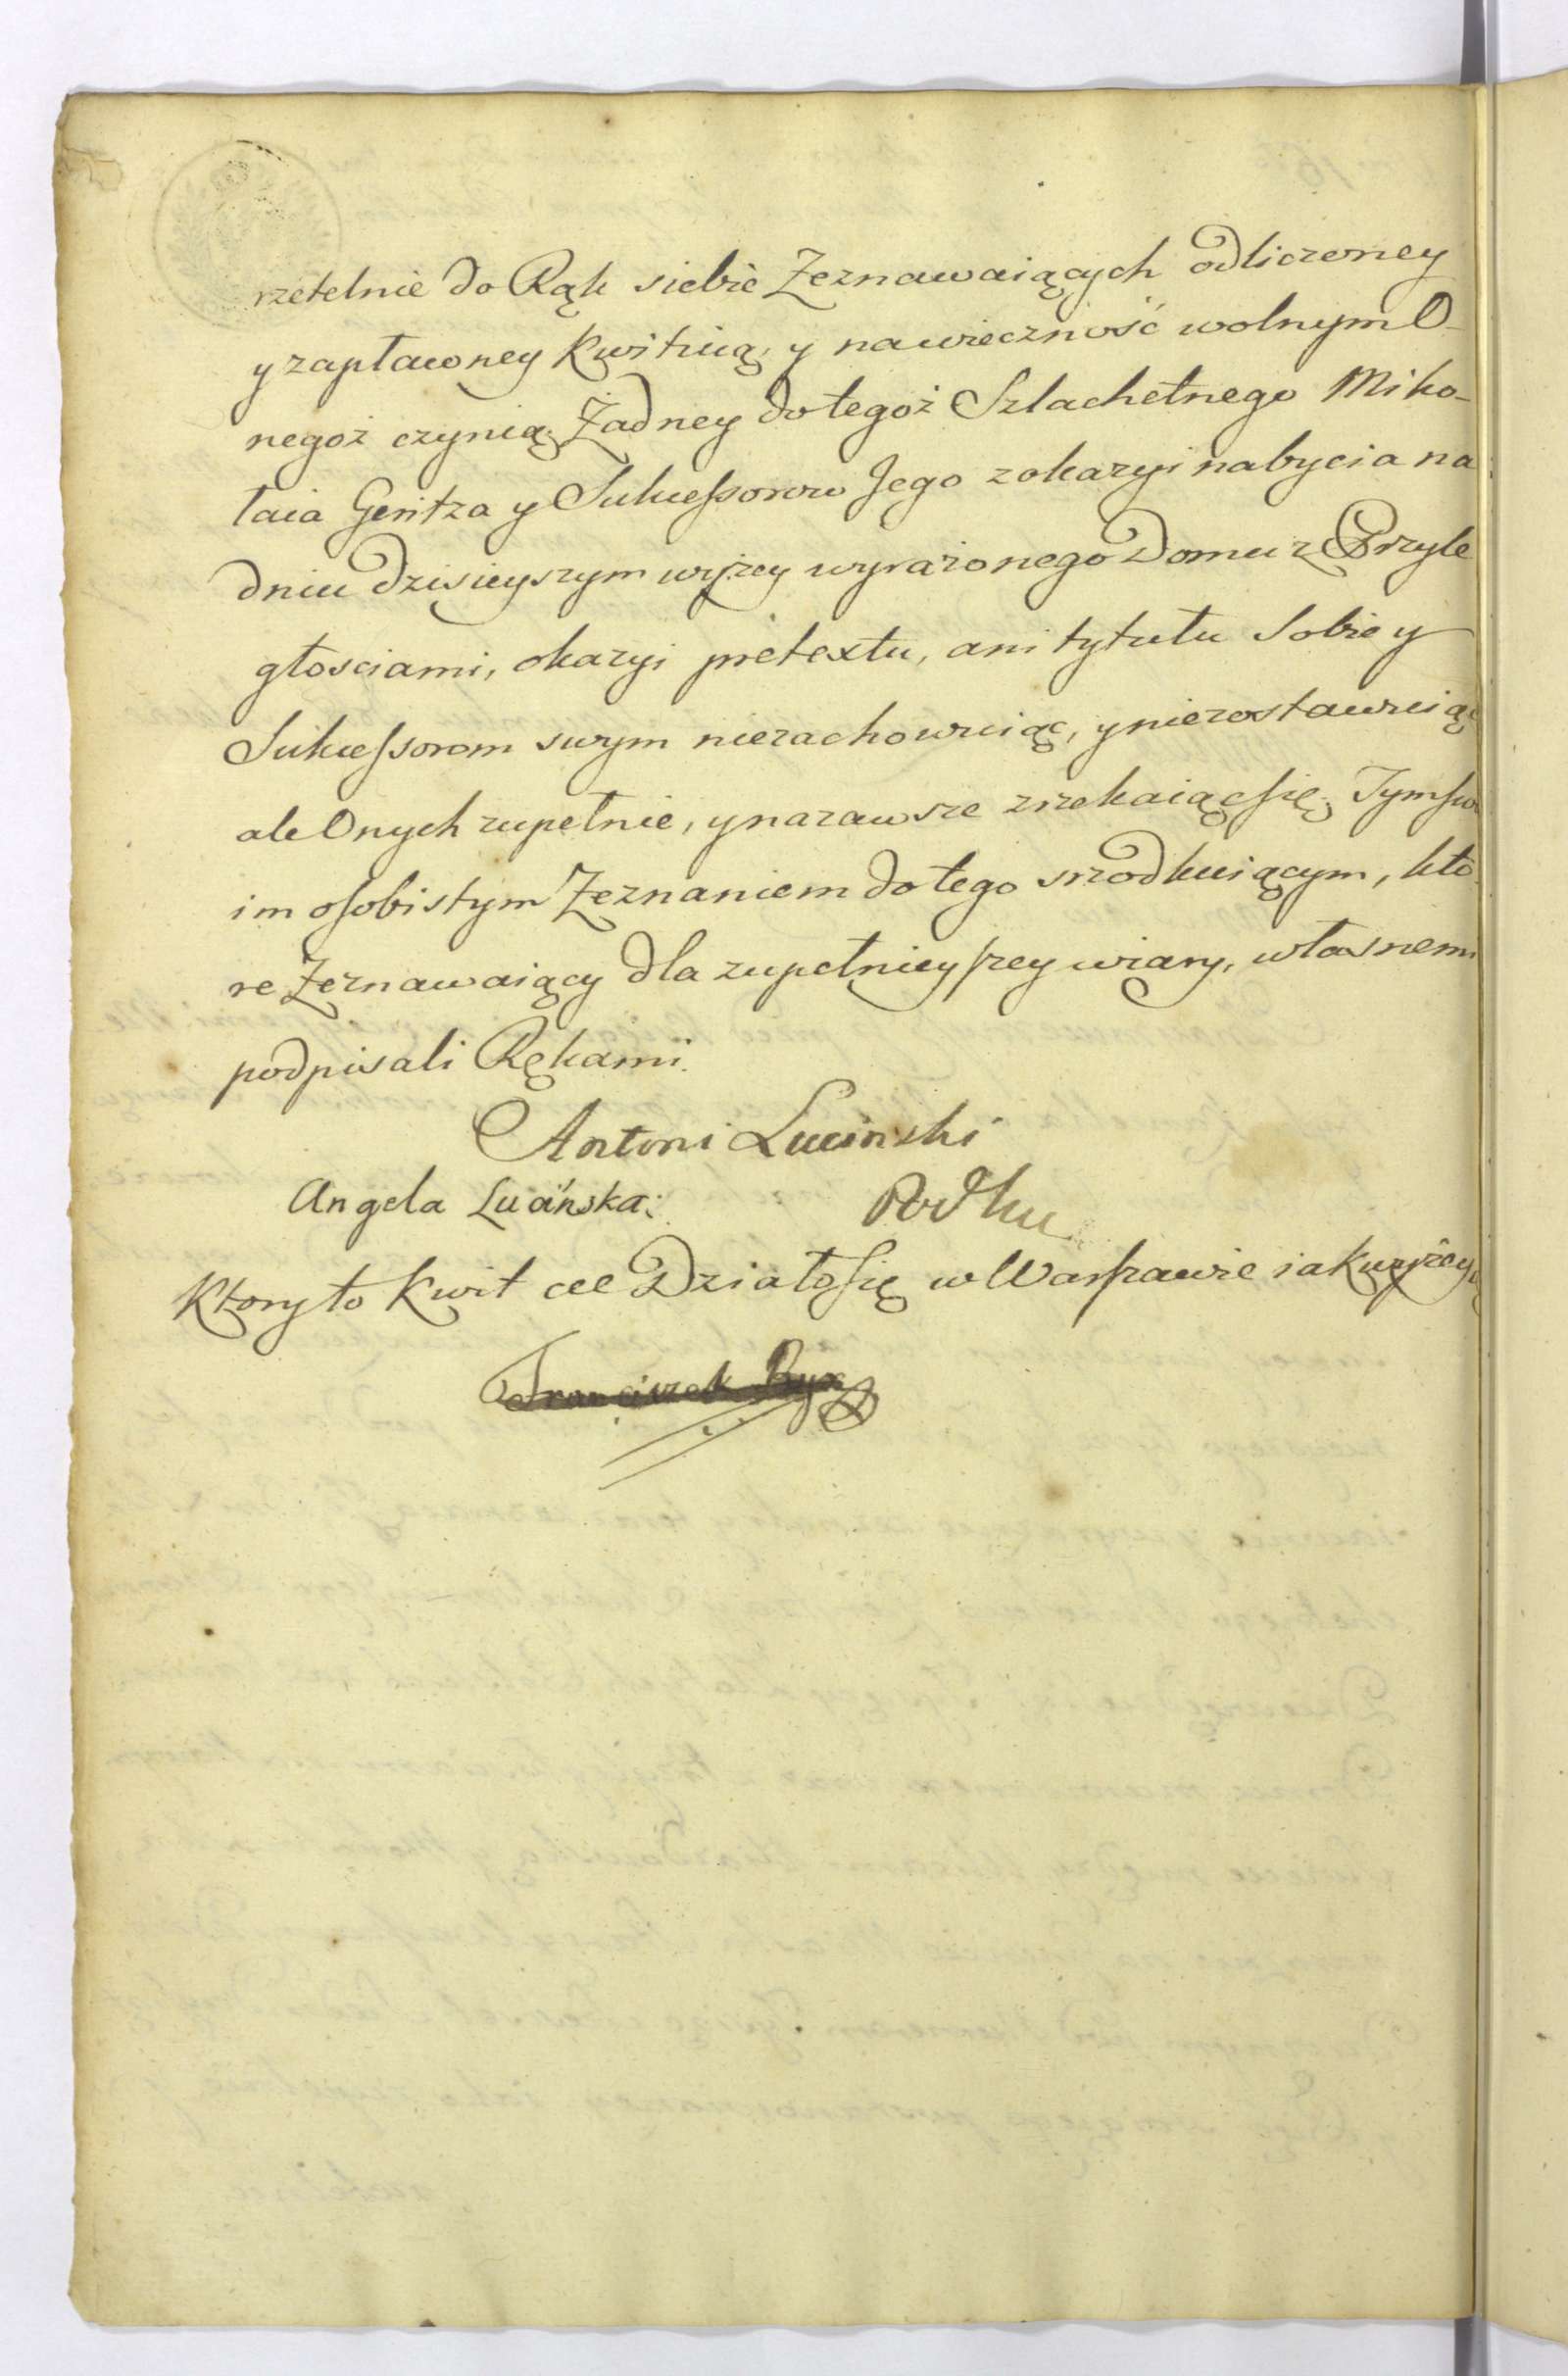 rzetelnie do Rąk siebie Zeznawaiących odliczoney
y zapłaconey kwituią, y nawieczność wolnym O-
negoż czynią, Żadney do tegoż Szlachetnego Miko-
łaia Gentza y Sukcessorow Jego z okazyi nabycia na
dniu dzisieyszym wyżey wyrażonego Domu z Przyle
głosciami, okazyi pretextu, ani tytułu Sobie y
Sukcessorom swym niezachowuiąc, y niezostawuiąc
ale Onych zupełnie, y nazawsze zrzekaiąc się, Tym swo
im osobistym Zeznaniem do tego srzodkuiącym, kto
re Zeznawaiący dla zupełnieyszey wiary, własnemi
podpisali Rękami.
Antoni Lucinski
Angela Lucińska
Ktory to Kwit Działo się w Warszawie iak wyżey
Franciszek Ryx